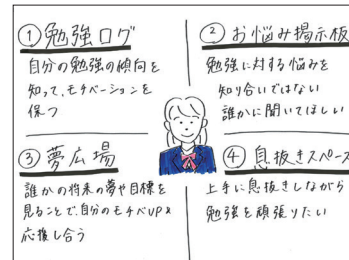 ①勉強ログ
自分の勉強の傾向を
知って、モチベーションを
保つ
②お悩み掲示板
勉強に対する悩みを
知り合いではない
誰かに聞いてほしい
③夢広場
誰かの将来の夢や目標を
見ることで、自分のモチベUP&
応援し合う
④息抜きスペース
上手に息抜きしながら
勉強を頑張りたい